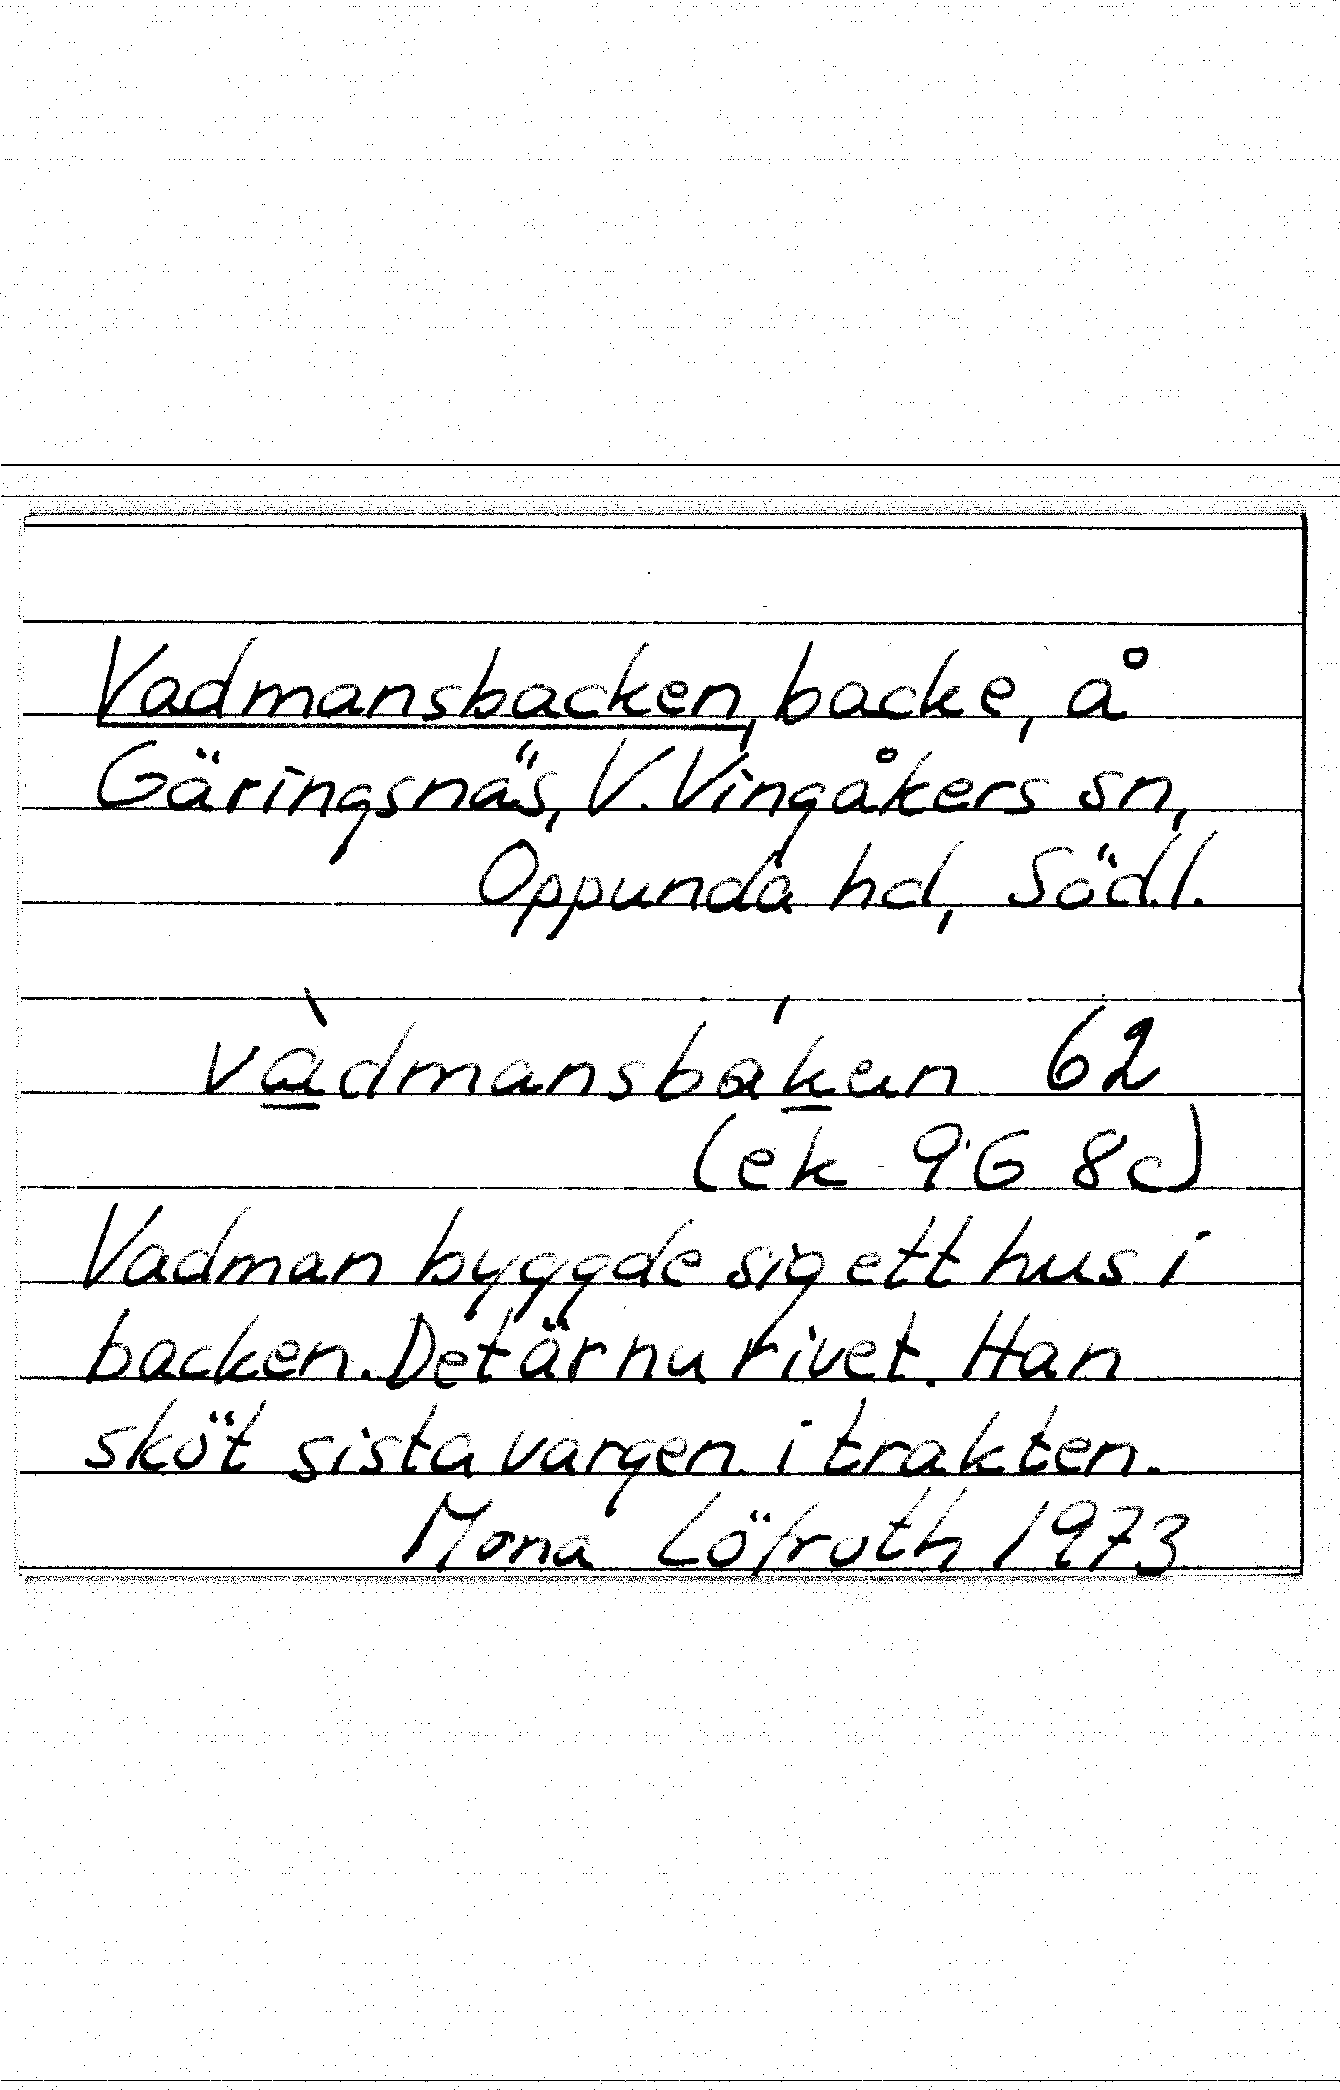 Vadmansbacken, backe, å
Gäringsnäs, V. Vingåkers sn,
Oppunda hd, Södl.
và̱dmansbáḵen 62
(ek 9G 8c)
Vadman byggde sig ett hus i
backen. Det är nu rivet. Han
sköt sista vargen i trakten.
Mona Löfroth 1973